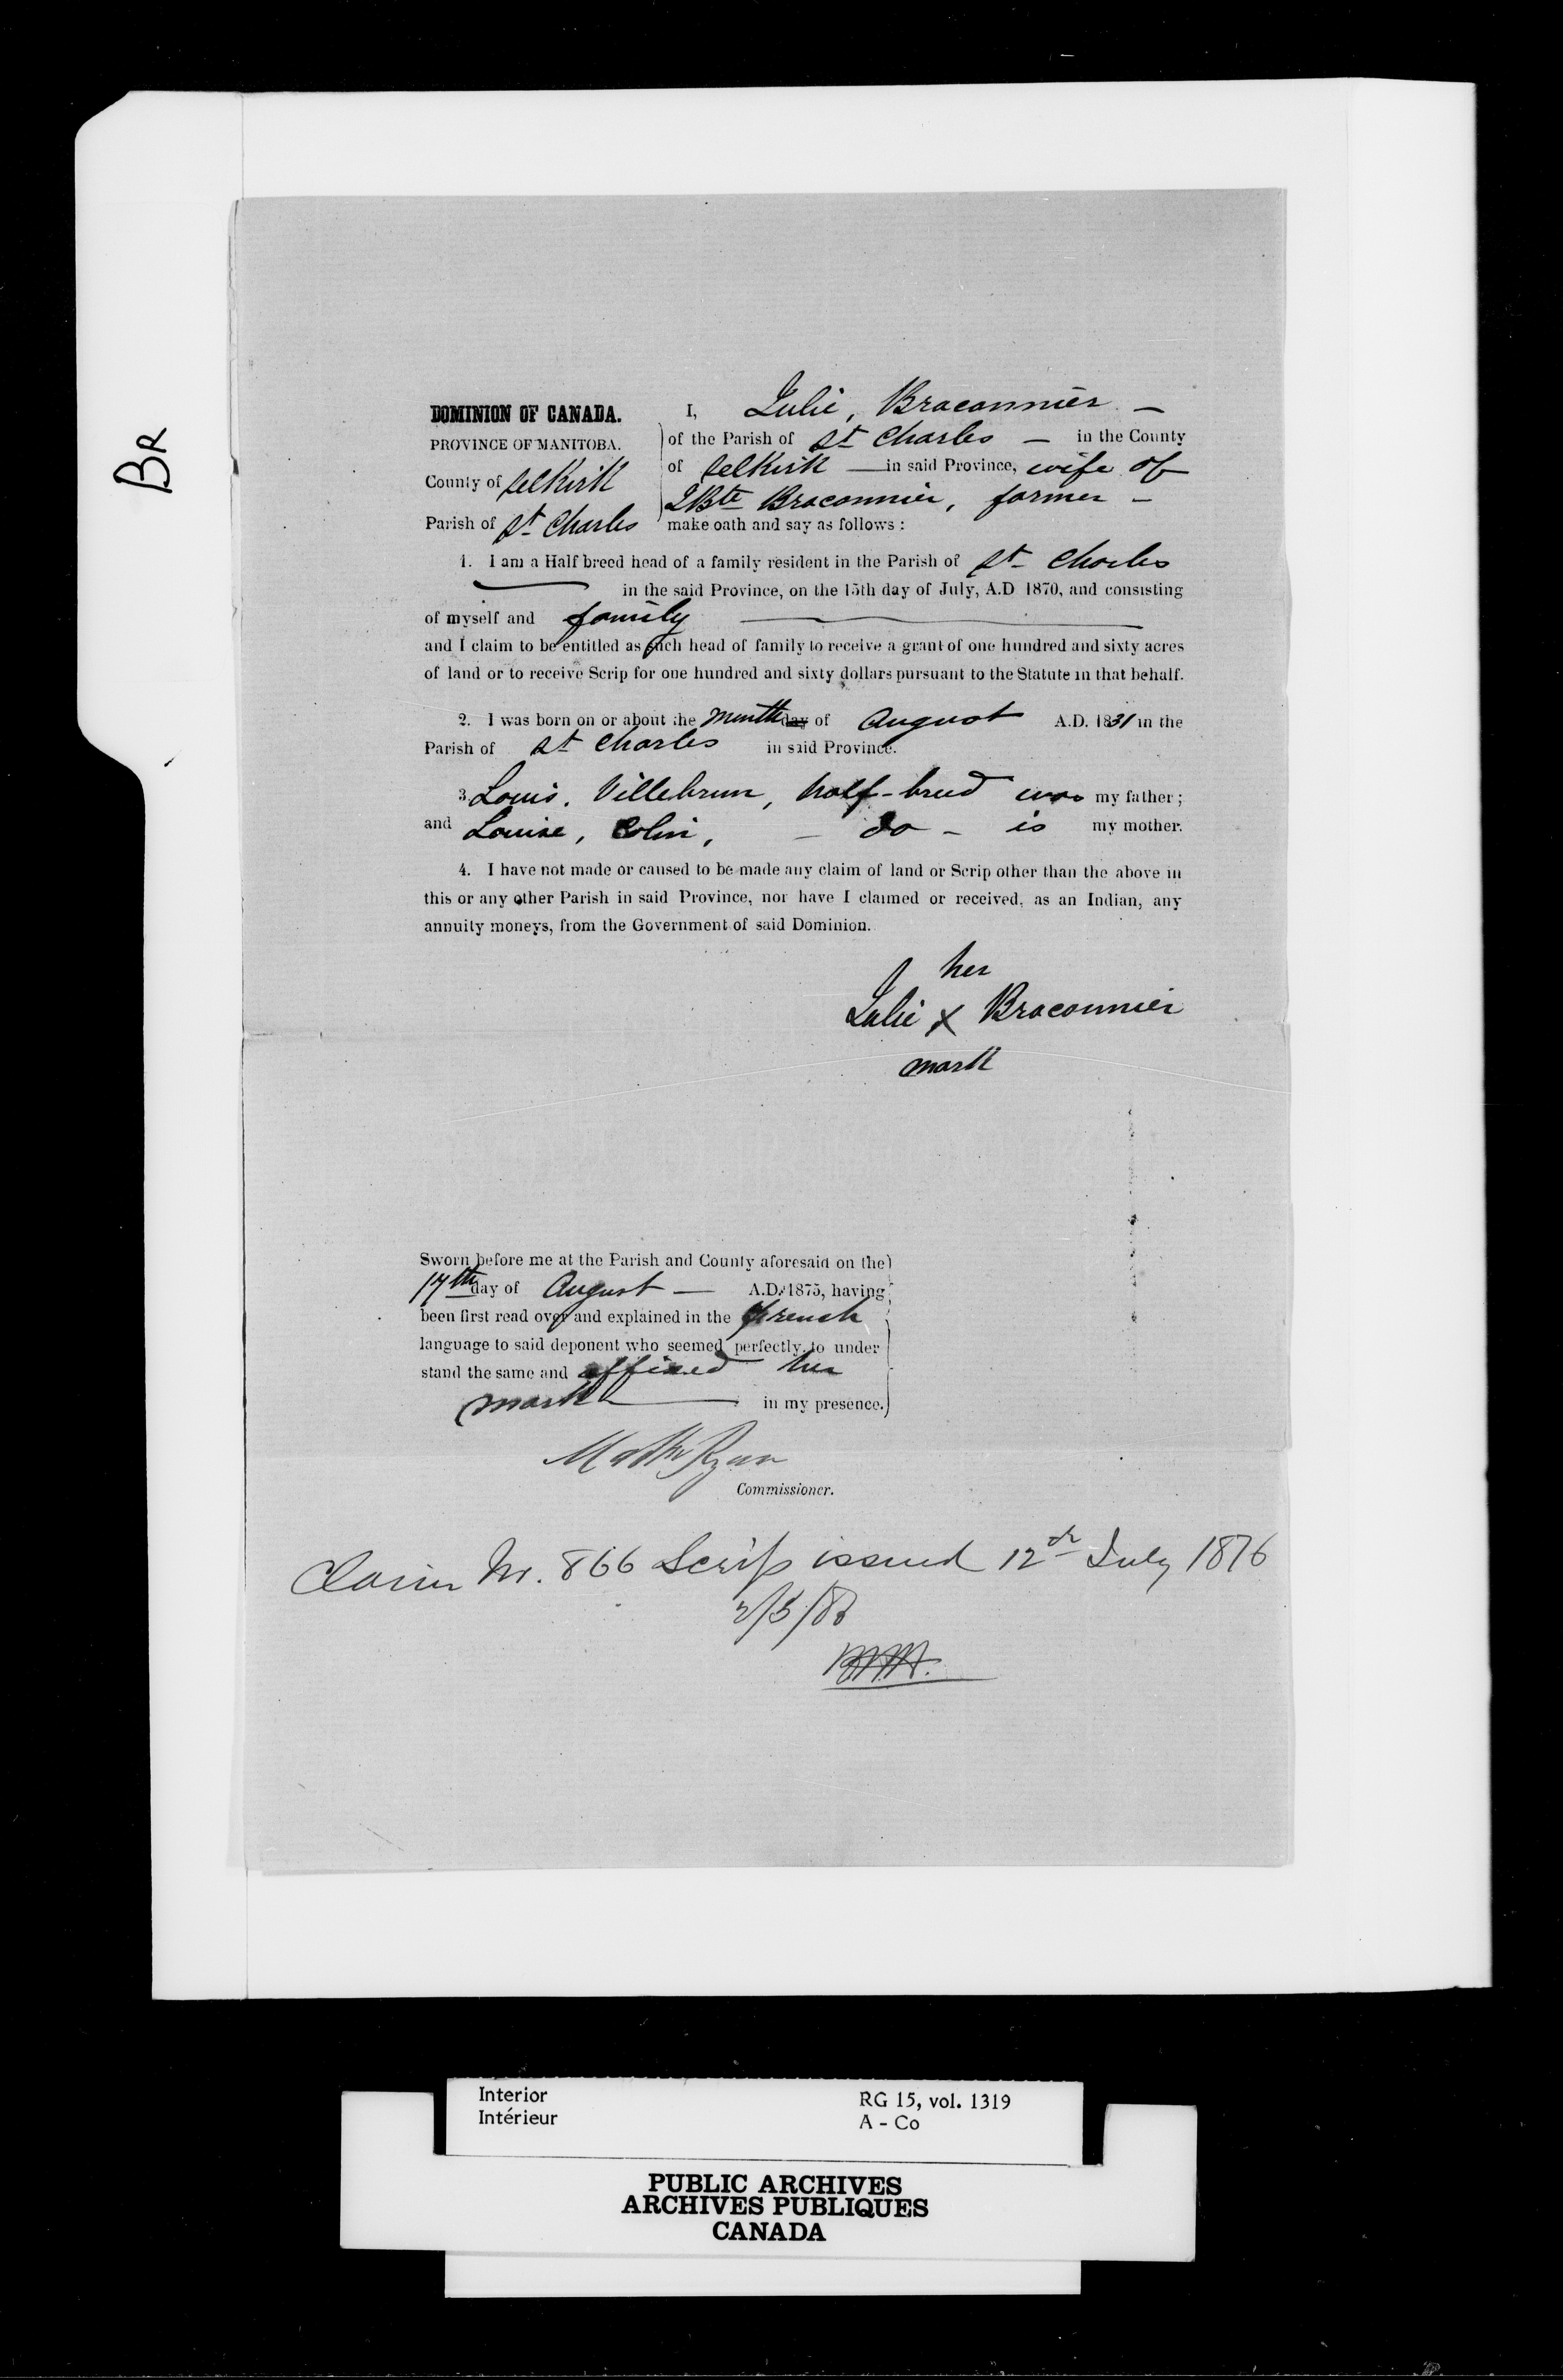 BR
DOMINION OF CANADA.
PROVINCE OF MANITOBA.
County of Selkirk
Parish of St Charles
I, Julie, Braconnier —
of the Parish of St Charles — in the County
of Selkirk — in said Province, wife of
JBte Braconnier, farmer —
make oath and say as follows :
1. I am a Half breed head of a family resident in the Parish of St Charles
— in the said Province, on the 15th day of July, A.D 1870, and consisting
of myself and family —
and I claim to be entitled as such head of family to receive a grant of one hundred and sixty acres
of land or to receive Scrip for one hundred and sixty dollars pursuant to the Statute in that behalf.
2. I was born on or about the month day of August A.D. 1831 in the
Parish of St Charles in said Province.
3 Louis, Villebrun, half-breed was my father ;
and Louise, Colin, — do — is my mother.
4. I have not made or caused to be made any claim of land or Scrip other than the above in
this or any other Parish in said Province, nor have I claimed or received, as an Indian, any
annuity moneys, from the Government of said Dominion.
her
Julie X Braconnier
mark
Sworn before me at the Parish and County aforesaid on the
17th day of August — A.D. 1875, having
been first read over and explained in the French
language to said deponent who seemed perfectly to under
stand the same and affixed her
mark — in my presence.
Matth Ryan
Commissioner.
Claim No. 866 Scrip issued 12th July 1876
Interior
Intérieur
RG 15, vol. 1319
A - Co
PUBLIC ARCHIVES
ARCHIVES PUBLIQUES
CANADA